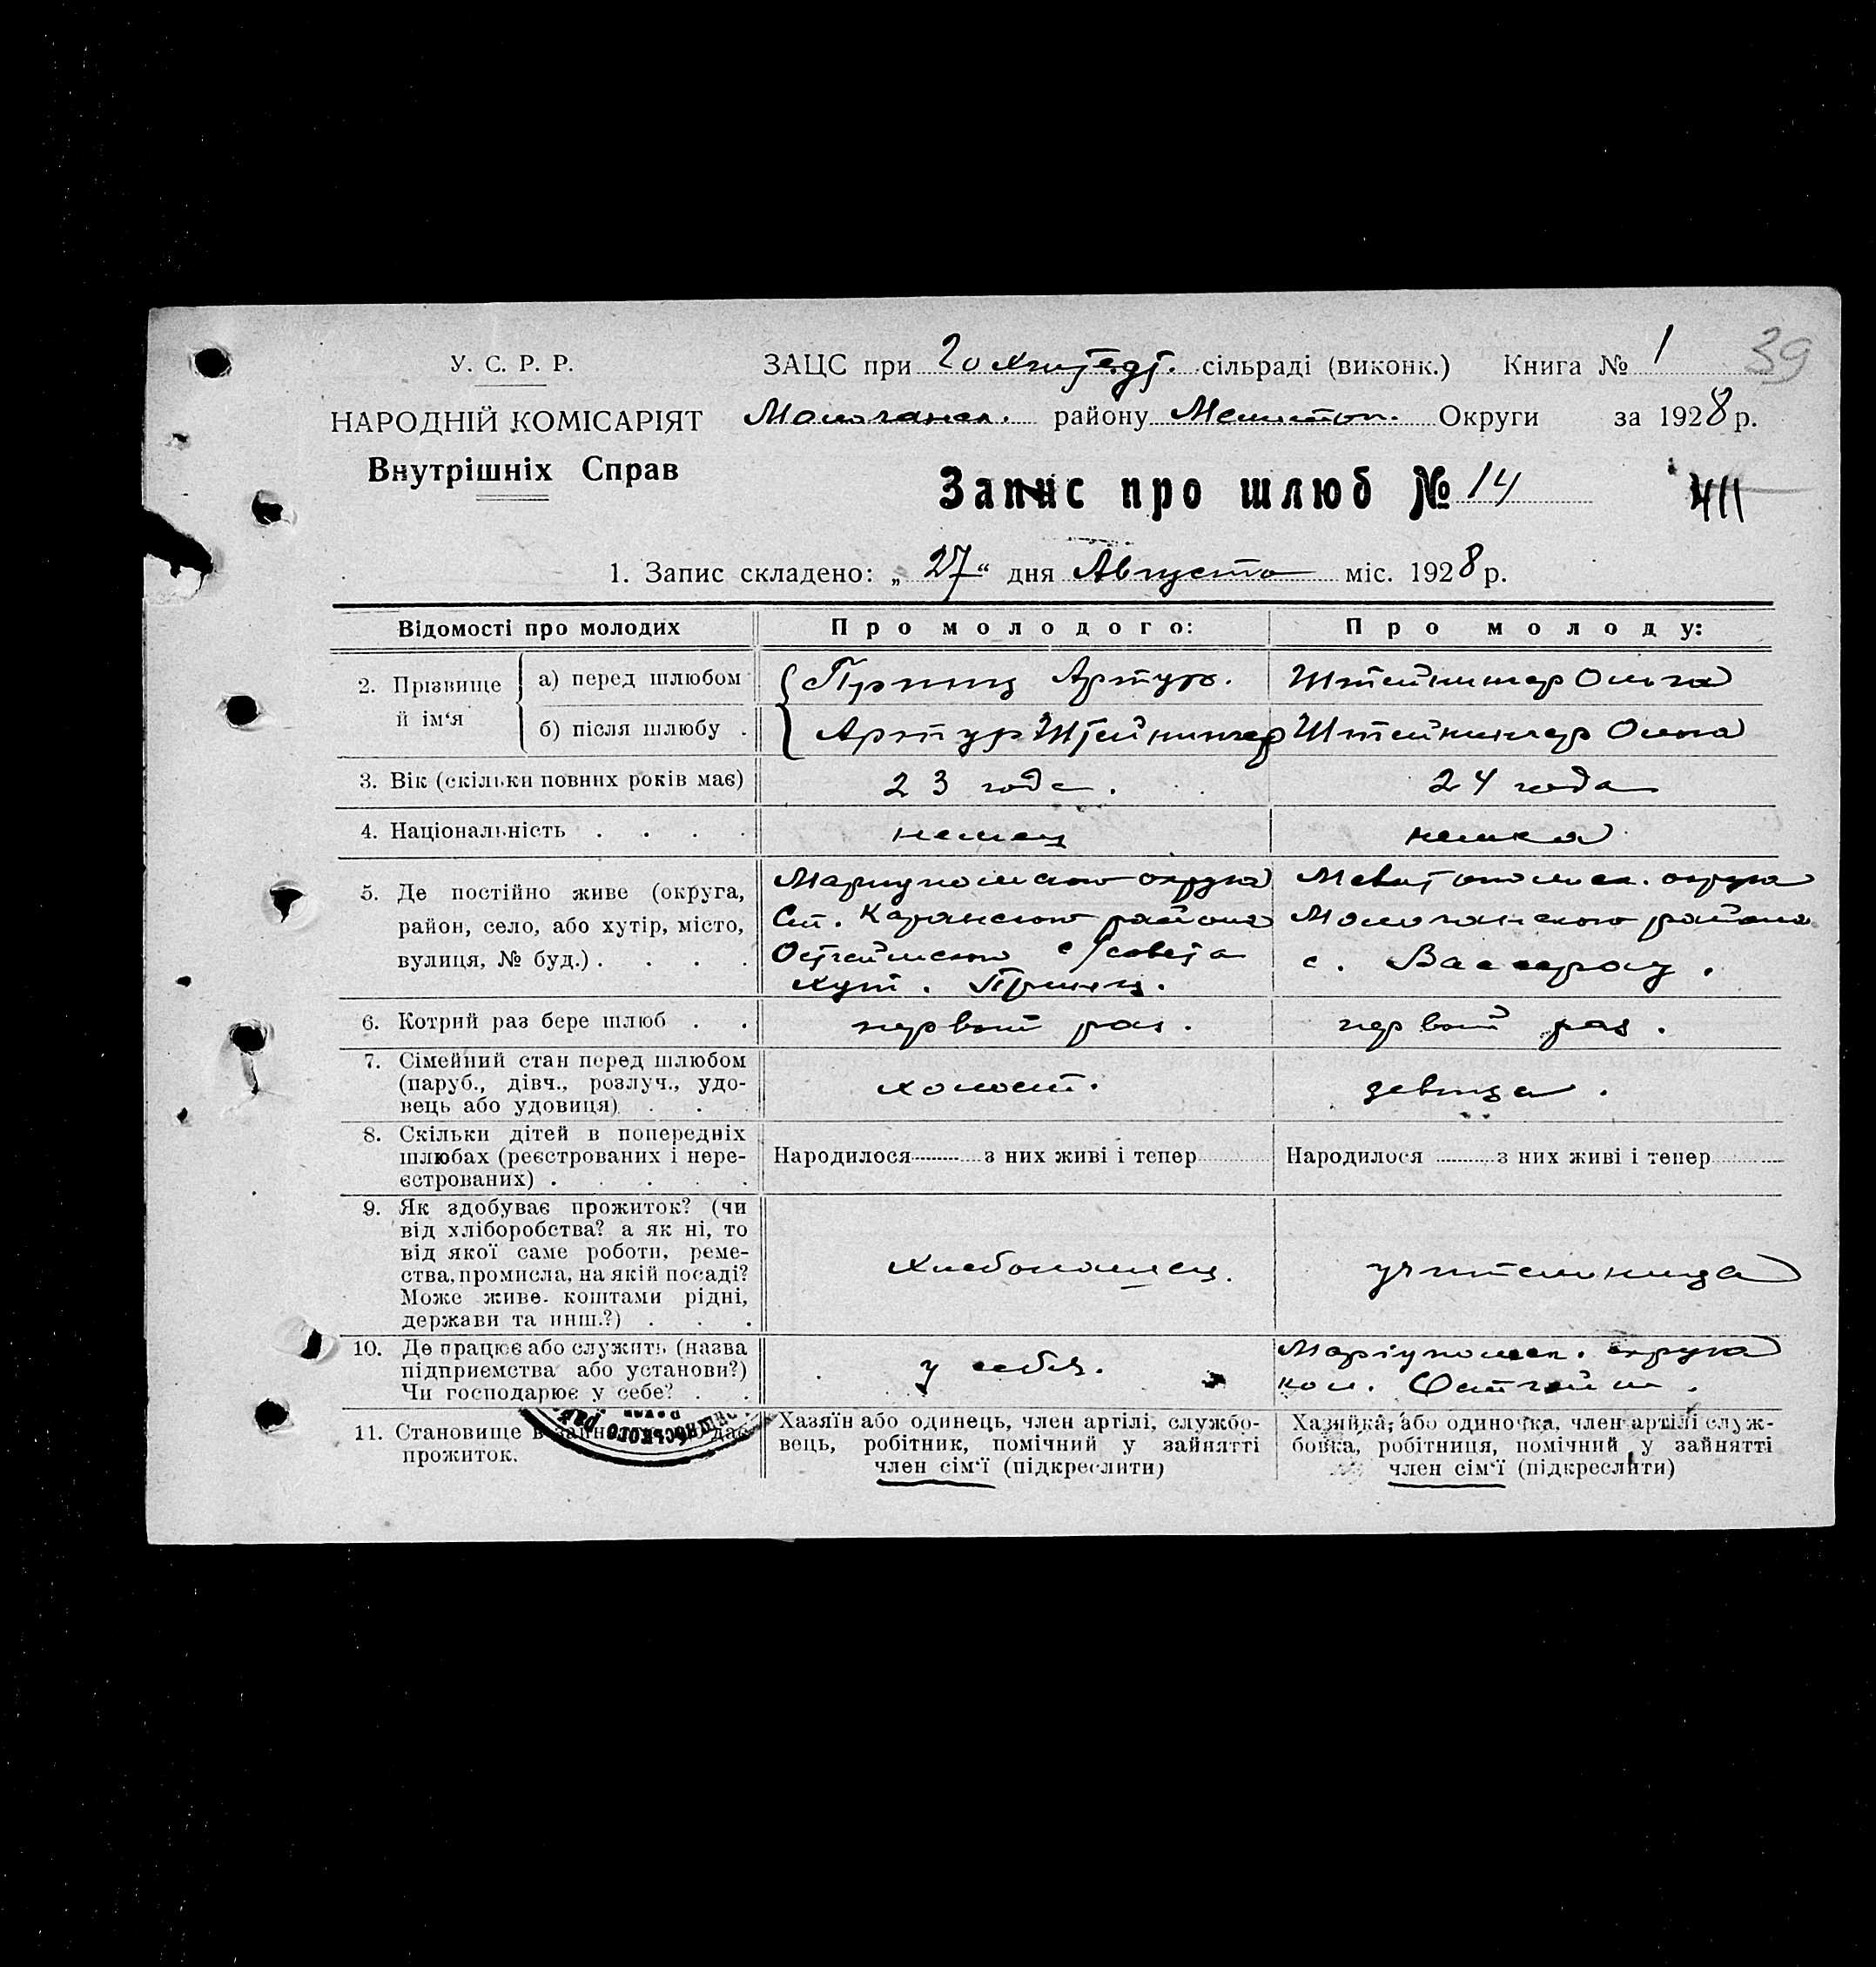 У. С. Р. Р.
НАРОДНІЙ КОМІСАРІЯТ
Внутрішніх Справ
ЗАЦС при Гохштедт. сільраді (виконк.) Книга № 1 39
Молочанск. району Мелитоп. Округи за 1928 р.
Запис про шлюб № 14 411
1. Запис складено: „27“ дня Августа міс. 1928 р.
Відомості про молодих Про молодого: Про молоду:
2. Прізвище й ім‘я
а) перед шлюбом Принц Артур. Штейнингер Ольга
б) після шлюбу . Артур Штейнингер Штейнингер Ольга
3. Вік (скільки повних років має) 23 года. 24 года
4. Національність . . . . немец немка
5. Де постійно живе (округа,
район, село, або хутір, місто,
вулиця, № буд.) . . . .
Мариупольского округа
Ст. Каранского района
Остгеймского с/совета
хут. Принц.
Мелитопольск. округа
Молочанского района
с. Вассерау.
6. Котрий раз бере шлюб . . первый раз. первый раз.
7. Сімейний стан перед шлюбом
(паруб., дівч., розлуч., удо-
вець або удовиця) . . .
холост. девица.
8. Скільки дітей в попередніх
шлюбах (реєстрованих і нере-
єстрованих) . . . . .
Народилося з них живі і тепер Народилося з них живі і тепер
9. Як здобуває прожиток? (чи
від хліборобства? а як ні, то
від якої саме роботи, реме-
ства, промисла, на якій посаді?
Може живе коштами рідні,
держави та инш.?) . . .
хлебопашец. учительница
10. Де працює або служить (назва
підприємства або установи?)
Чи господарює у себе? . .
у себя.
Маріупольск. округа
кол. Остгейм.
11. Становище в дає
прожиток.
Хазяїн або одинець, член артілі, службо-
вець, робітник, помічний у зайнятті
член сім‘ї (підкреслити)
Хазяйка, або одиночка, член артілі служ-
бовка, робітниця, помічний у зайнятті
член сім‘ї (підкреслити)